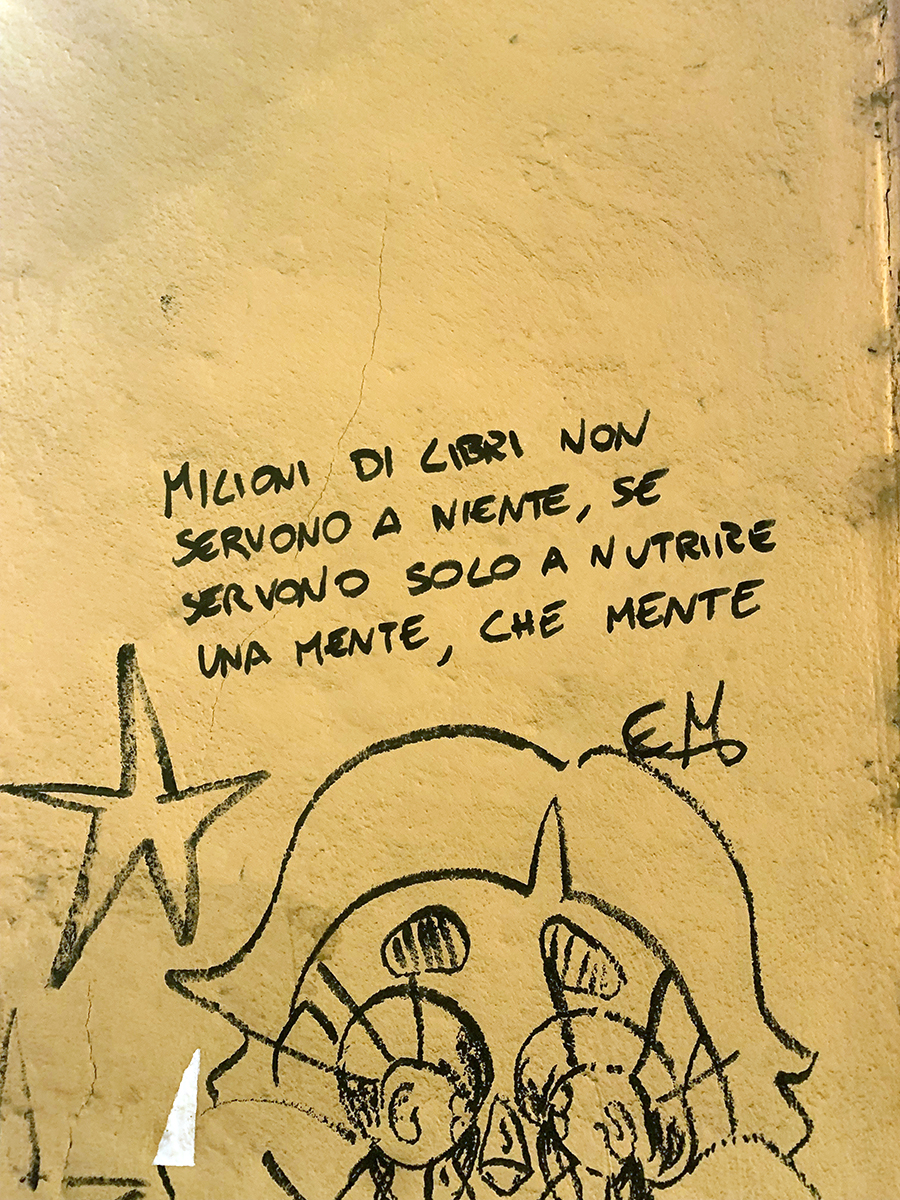 MILIONI DI LIBRI NON
SERVONO A NIENTE, SE
SERVONO SOLO A NUTRIIRE
UNA MENTE, CHE MENTE
EM